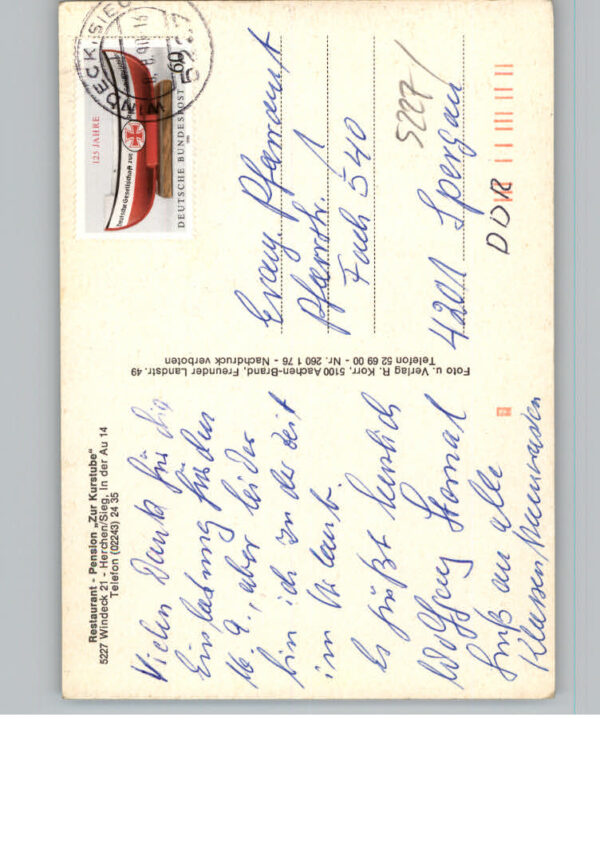 Restaurant - Pension „Zur Kurstube"
5227 Windeck 21 - Herchen/Sieg, In der Au 14
Telefon (02243) 24 35
Vielen Dank für die
Einladung für den
16.9., aber leider
bin ich in der Zeit
im Urlaub.
Es grüßt herzlich
Wolfgang
Gruß an alle
Klassenkameraden
Foto u. Verlag R. Korr, 5100 Aachen-Brand, Freunder Landstr. 49
Telefon 52 69 00 - Nr. 260 1 76 - Nachdruck verboten
125 JAHRE
Deutsche Gesellschaft zur
DEUTSCHE BUNDESPOST
60
WINDECK, SIEG
5227
Evang. Pfarramt
Pfarrstr. 1
Fach 540
4201 Spergau
DDR
5227/